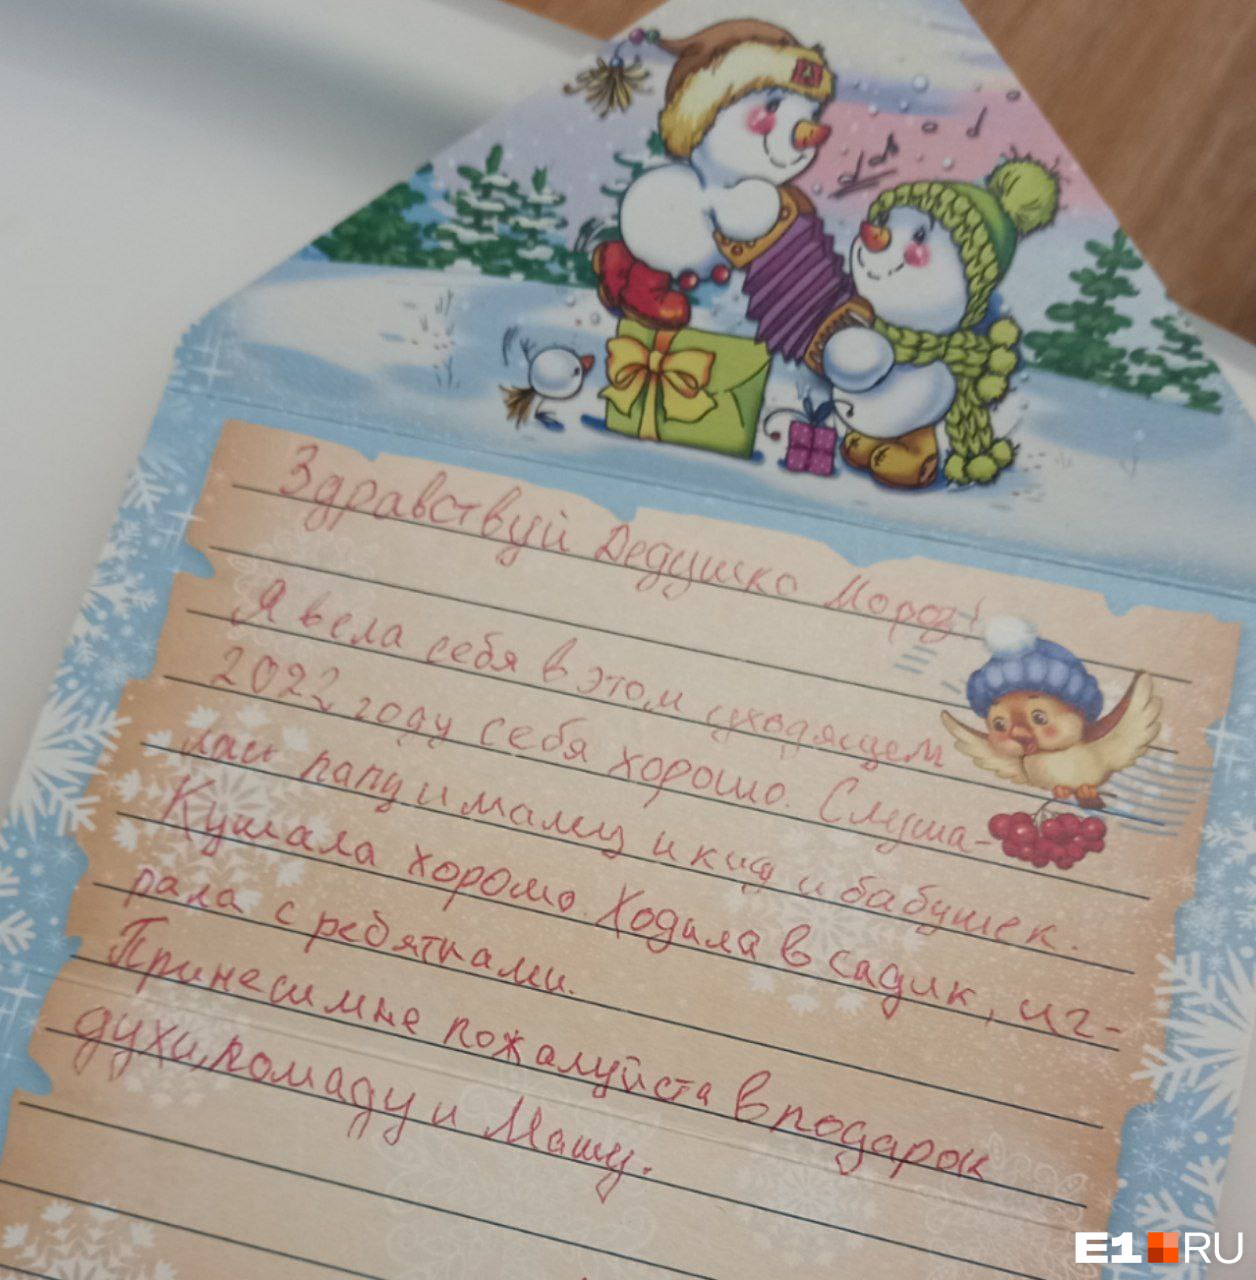 Здравствуй Дедушка Мороз!
Я вела себя в этом уходящем
2022 году себя хорошо. Слуша-
лась папу и маму и и бабушек.
Кушала хорошо. Ходила в садик, иг-
рала с ребятками.
Принеси мне пожалуйста в подарок
духи, помаду и Машу.
E1.RU